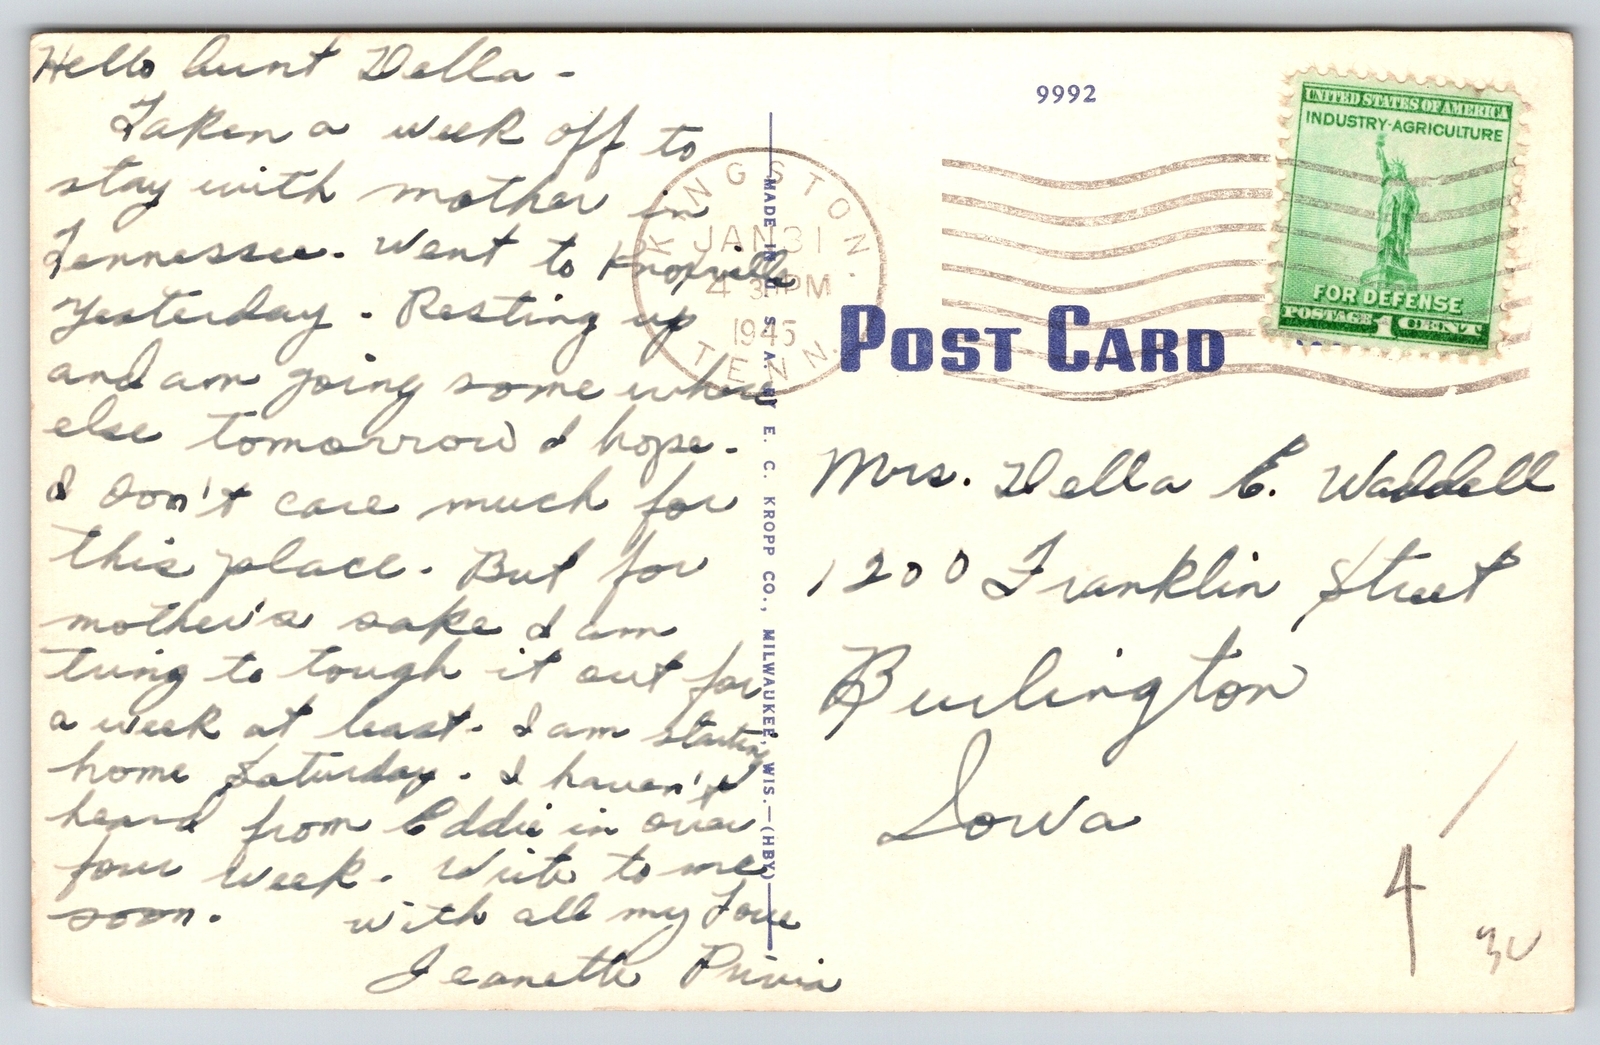 Hello Aunt Della -
Taken a week off to
stay with mother in
Tennessee. Went to Knoxville
Yesterday. Resting up
and am going some where
else tomorrow I hope.
I don't care much for
this place. But for
mother's sake I am
tring to tough it out for
a week at least. I am starting
home Saturday. I haven't
heard from Eddie in over
four week. Write to me
soon. with all my Love
Jeanette
MADE IN U. S. A. BY E. C. KROPP CO., MILWAUKEE, WIS.—(HBY)
9992
KINGSTON
JAN 31
4 30 PM
1945
TENN.
POST CARD
UNITED STATES OF AMERICA
INDUSTRY-AGRICULTURE
FOR DEFENSE
POSTAGE 1 CENT
Mrs. Della E. Waddell
1200 Franklin Street
Burlington
Iowa
4